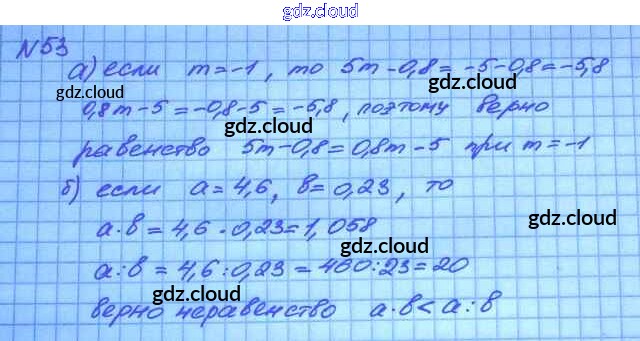 gdz.cloud
N53
а) если m=-1, то 5m-0,8=-5-0,8=-5,8
gdz.cloud gdz.cloud
0,8m-5=-0,8-5=-5,8, поэтому верно
gdz.cloud
равенство 5m-0,8=0,8m-5 при m=-1
gdz.cloud
б) если a=4,6, b=0,23, то
gdz.cloud
a·b=4,6·0,23=1,058
gdz.cloud
a:b=4,6:0,23=460:23=20
gdz.cloud
верно неравенство a·b<a:b
gdz.cloud